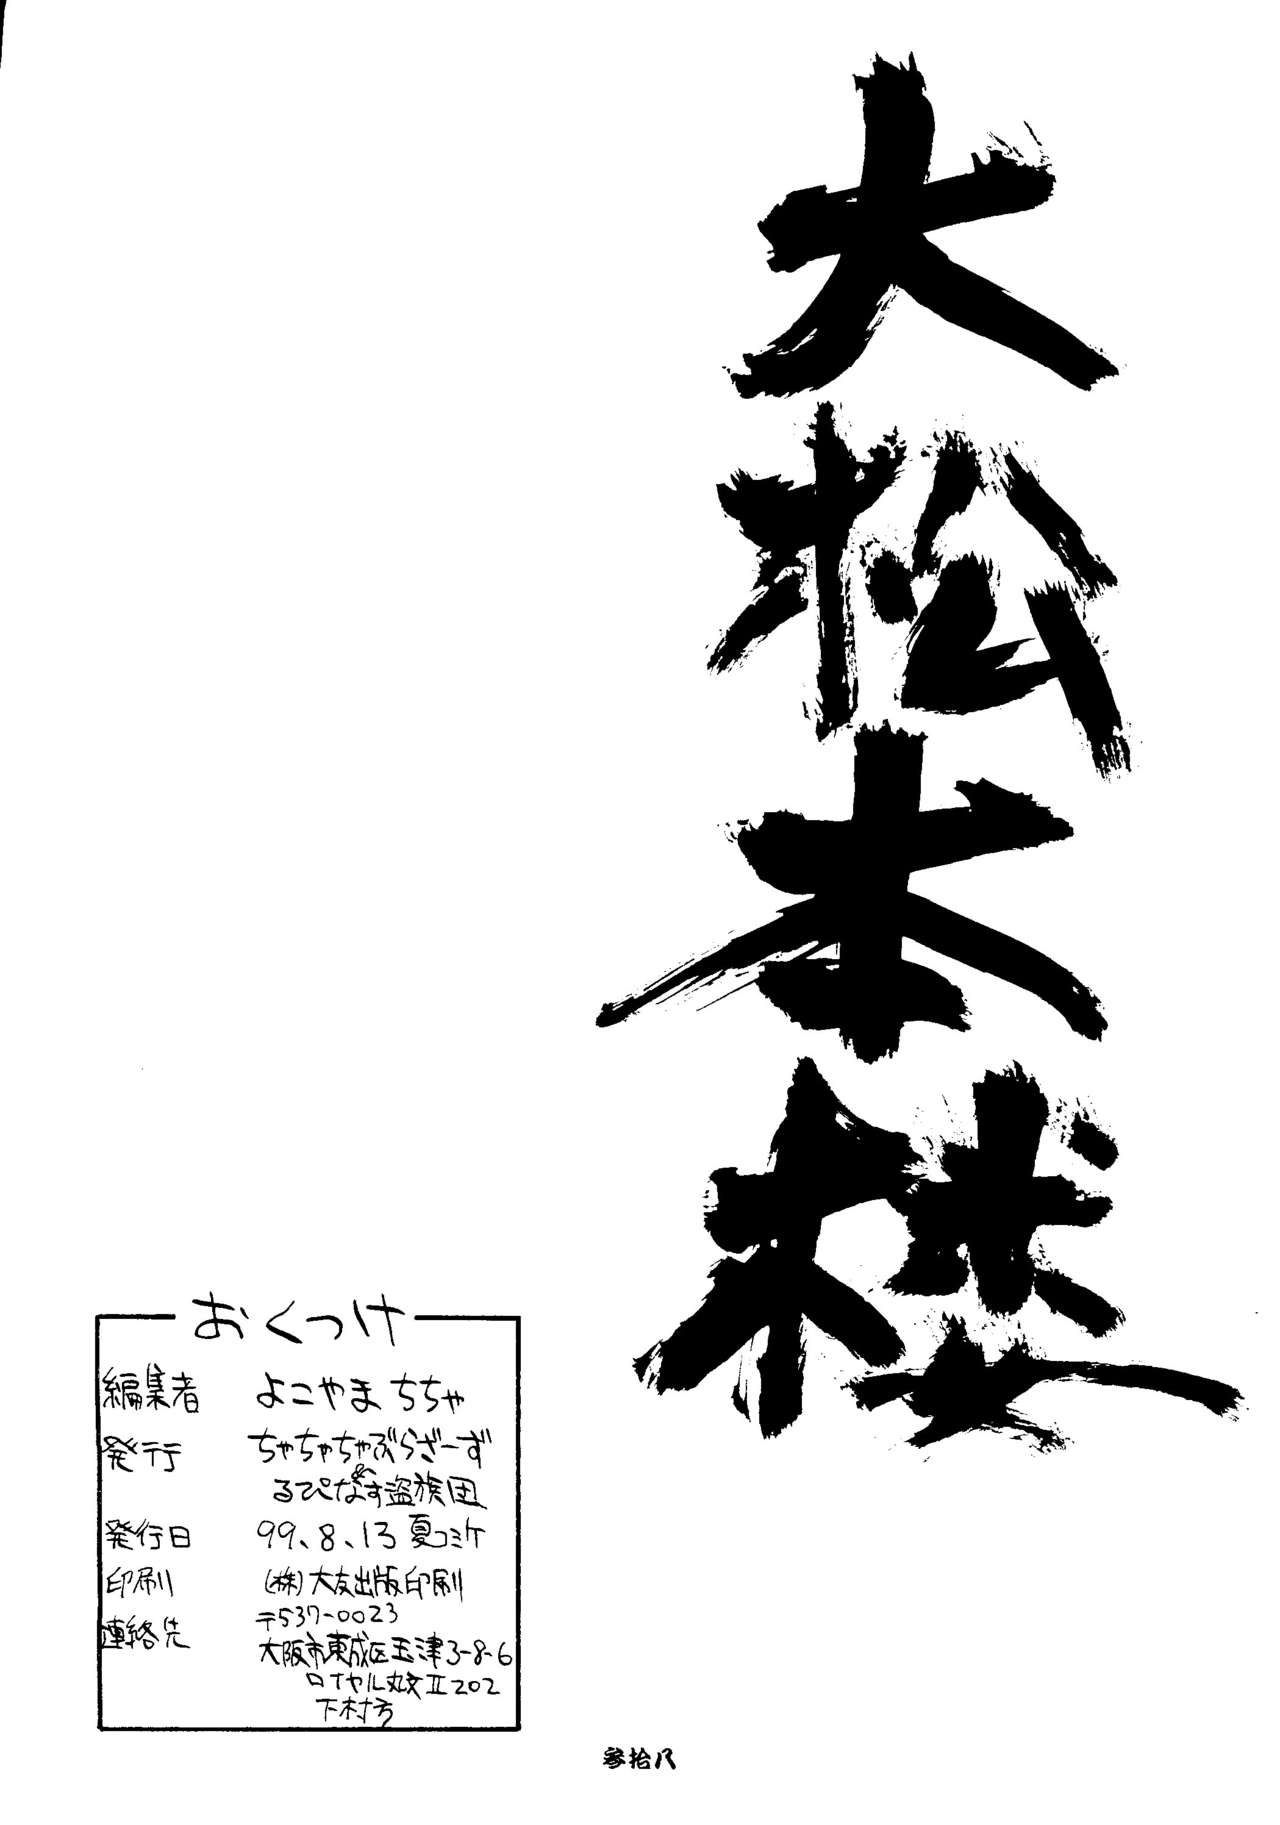 大松本楼
おくっけ
編集者 よこやま ちちゃ
発行 ちゃちゃちゃぶらざーず
&
るぴなす盗族団
発行日 99.8.13 夏コミケ
印刷 (株)大友出版印刷
連絡先 〒537-0023
大阪市東成区玉津3-8-6
ロイヤル丸文II202
下村方
参拾八